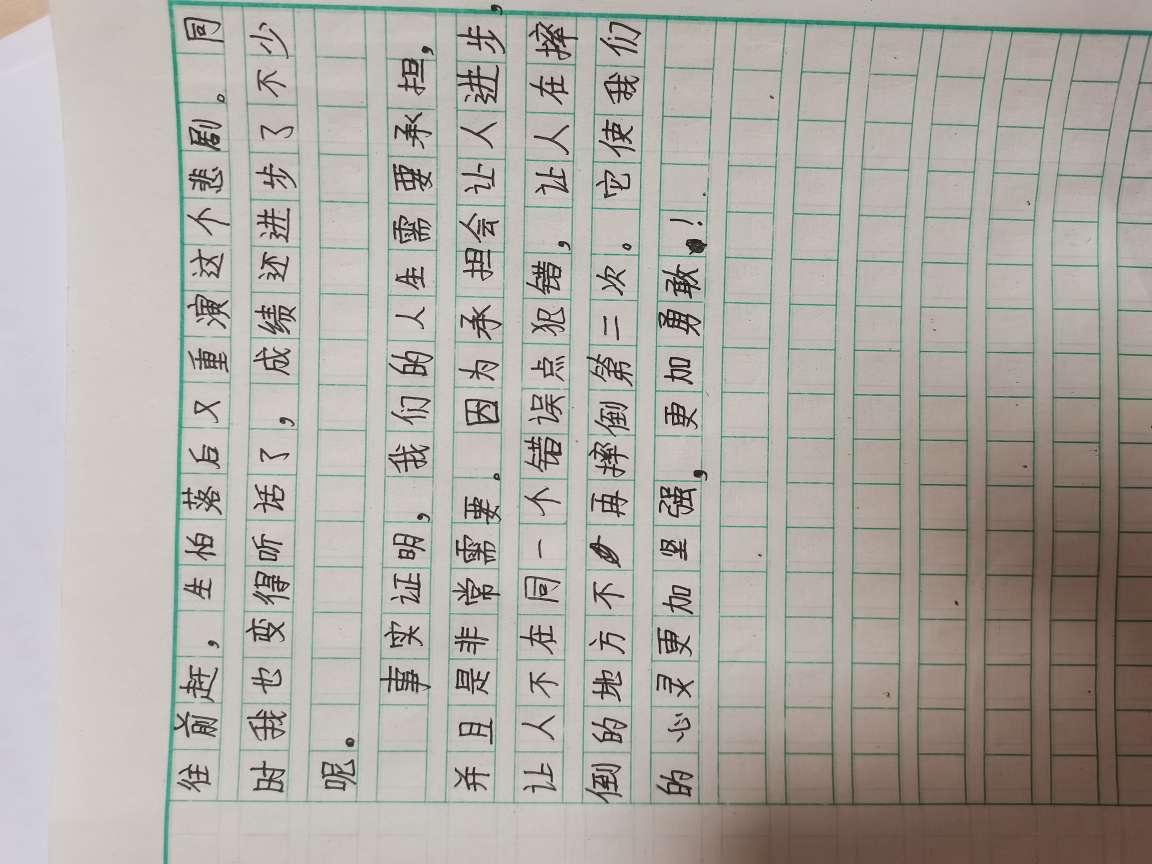 往前赶，生怕落后又重演这个悲剧。同
时我也变得听话了，成绩还进步了不少
呢。
事实证明，我们的人生需要承担，
并且是非常需要。因为承担会让人进步，
让人不在同一个错误点犯错，让人在摔
倒的地方不再摔倒第二次。它使我们
的心灵更加坚强，更加勇敢！